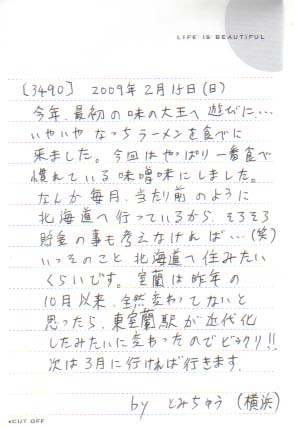 LIFE IS BEAUTIFUL
[3490] 2009年2月15日(日)
今年、最初の味の大王へ遊びに…
いやいや なっちラーメンを食べに
来ました。今回はやっぱり一番食べ
慣れている味噌味にしました。
なんか毎月、当たり前のように
北海道へ行っているから、そろそろ
貯金の事も考えなければ…(笑)
いっそのこと 北海道へ住みたい
くらいです。室蘭は昨年の
10月以来、全然変わってないと
思ったら、東室蘭駅が近代化
したみたいに変わったのでビックリ!!
次は3月に行ければ行きます。
by とみちゅう(横浜)
◂CUT OFF